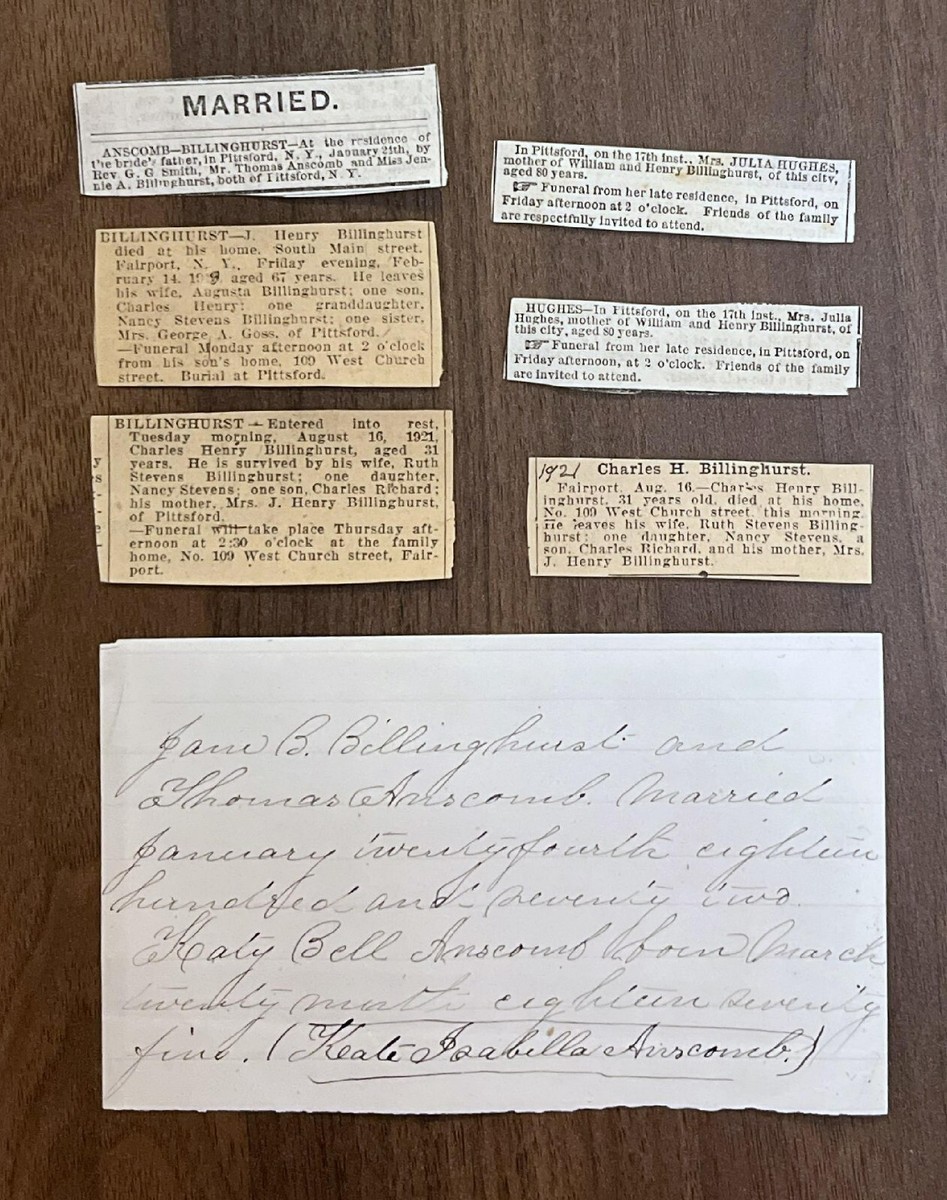 MARRIED.
ANSCOMB—BILLINGHURST—At the residence of
the bride's father, in Pittsford, N. Y., January 24th, by
Rev. G. G Smith, Mr. Thomas Anscomb and Miss Jen-
nie A. Billinghurst, both of Pittsford, N. Y.
BILLINGHURST—J. Henry Billinghurst
died at his home, South Main street,
Fairport, N. Y., Friday evening, Feb-
ruary 14, aged 67 years. He leaves
his wife, Augusta Billinghurst; one son,
Charles Henry; one granddaughter,
Nancy Stevens Billinghurst; one sister,
Mrs. George A. Goss, of Pittsford.
—Funeral Monday afternoon at 2 o'clock
from his son's home, 109 West Church
street. Burial at Pittsford.
BILLINGHURST — Entered into rest,
Tuesday morning, August 16, 1921,
Charles Henry Billinghurst, aged 31
years. He is survived by his wife, Ruth
Stevens Billinghurst; one daughter,
Nancy Stevens; one son, Charles Richard;
his mother, Mrs. J. Henry Billinghurst,
of Pittsford.
—Funeral will take place Thursday aft-
ernoon at 2:30 o'clock at the family
home, No. 109 West Church street, Fair-
port.
In Pittsford, on the 17th inst., Mrs. JULIA HUGHES,
mother of William and Henry Billinghurst, of this city,
aged 80 years.
☞ Funeral from her late residence, in Pittsford, on
Friday afternoon at 2 o'clock. Friends of the family
are respectfully invited to attend.
HUGHES—In Pittsford, on the 17th inst., Mrs. Julia
Hughes, mother of William and Henry Billinghurst, of
this city, aged 80 years.
☞ Funeral from her late residence, in Pittsford, on
Friday afternoon, at 2 o'clock. Friends of the family
are invited to attend.
1921 Charles H. Billinghurst.
Fairport, Aug. 16.—Charles Henry Bill-
inghurst, 31 years old, died at his home,
No. 109 West Church street, this morning.
He leaves his wife, Ruth Stevens Billing-
hurst; one daughter, Nancy Stevens, a
son, Charles Richard, and his mother, Mrs.
J. Henry Billinghurst.
Jane B. Billinghurst and
Thomas Anscomb. Married
January twenty fourth eighteen
hundred and seventy two.
Katy Bell Anscomb born March
twenty ninth eighteen seventy
five. (Kate Isabella Anscomb.)